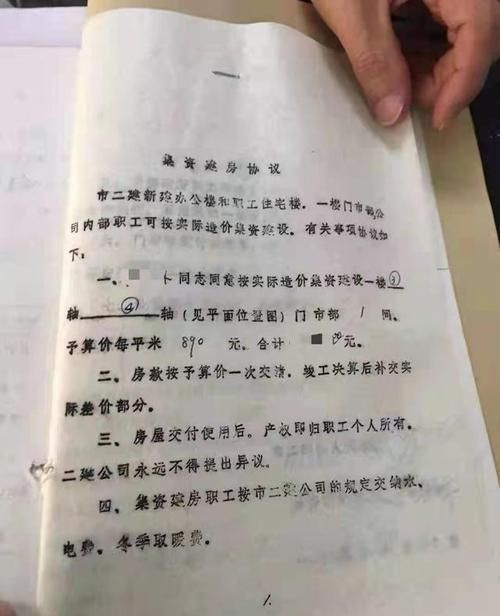 集资建房协议
市二建新建办公楼和职工住宅楼，一楼门市部公
司内部职工可按实际造价集资建设。有关事项协议如
下：
一、 同志同意按实际造价集资建设一楼③
轴 ④ 轴（见平面位置图）门市部 1 间。
予算价每平米 890 元。合计 元。
二、房款按予算价一次交清，竣工决算后补交实
际差价部分。
三、房屋交付使用后。产权即归职工个人所有。
二建公司永远不得提出异议。
四、集资建房职工按市二建公司的规定交纳水、
电费。冬季取暖费。
1.